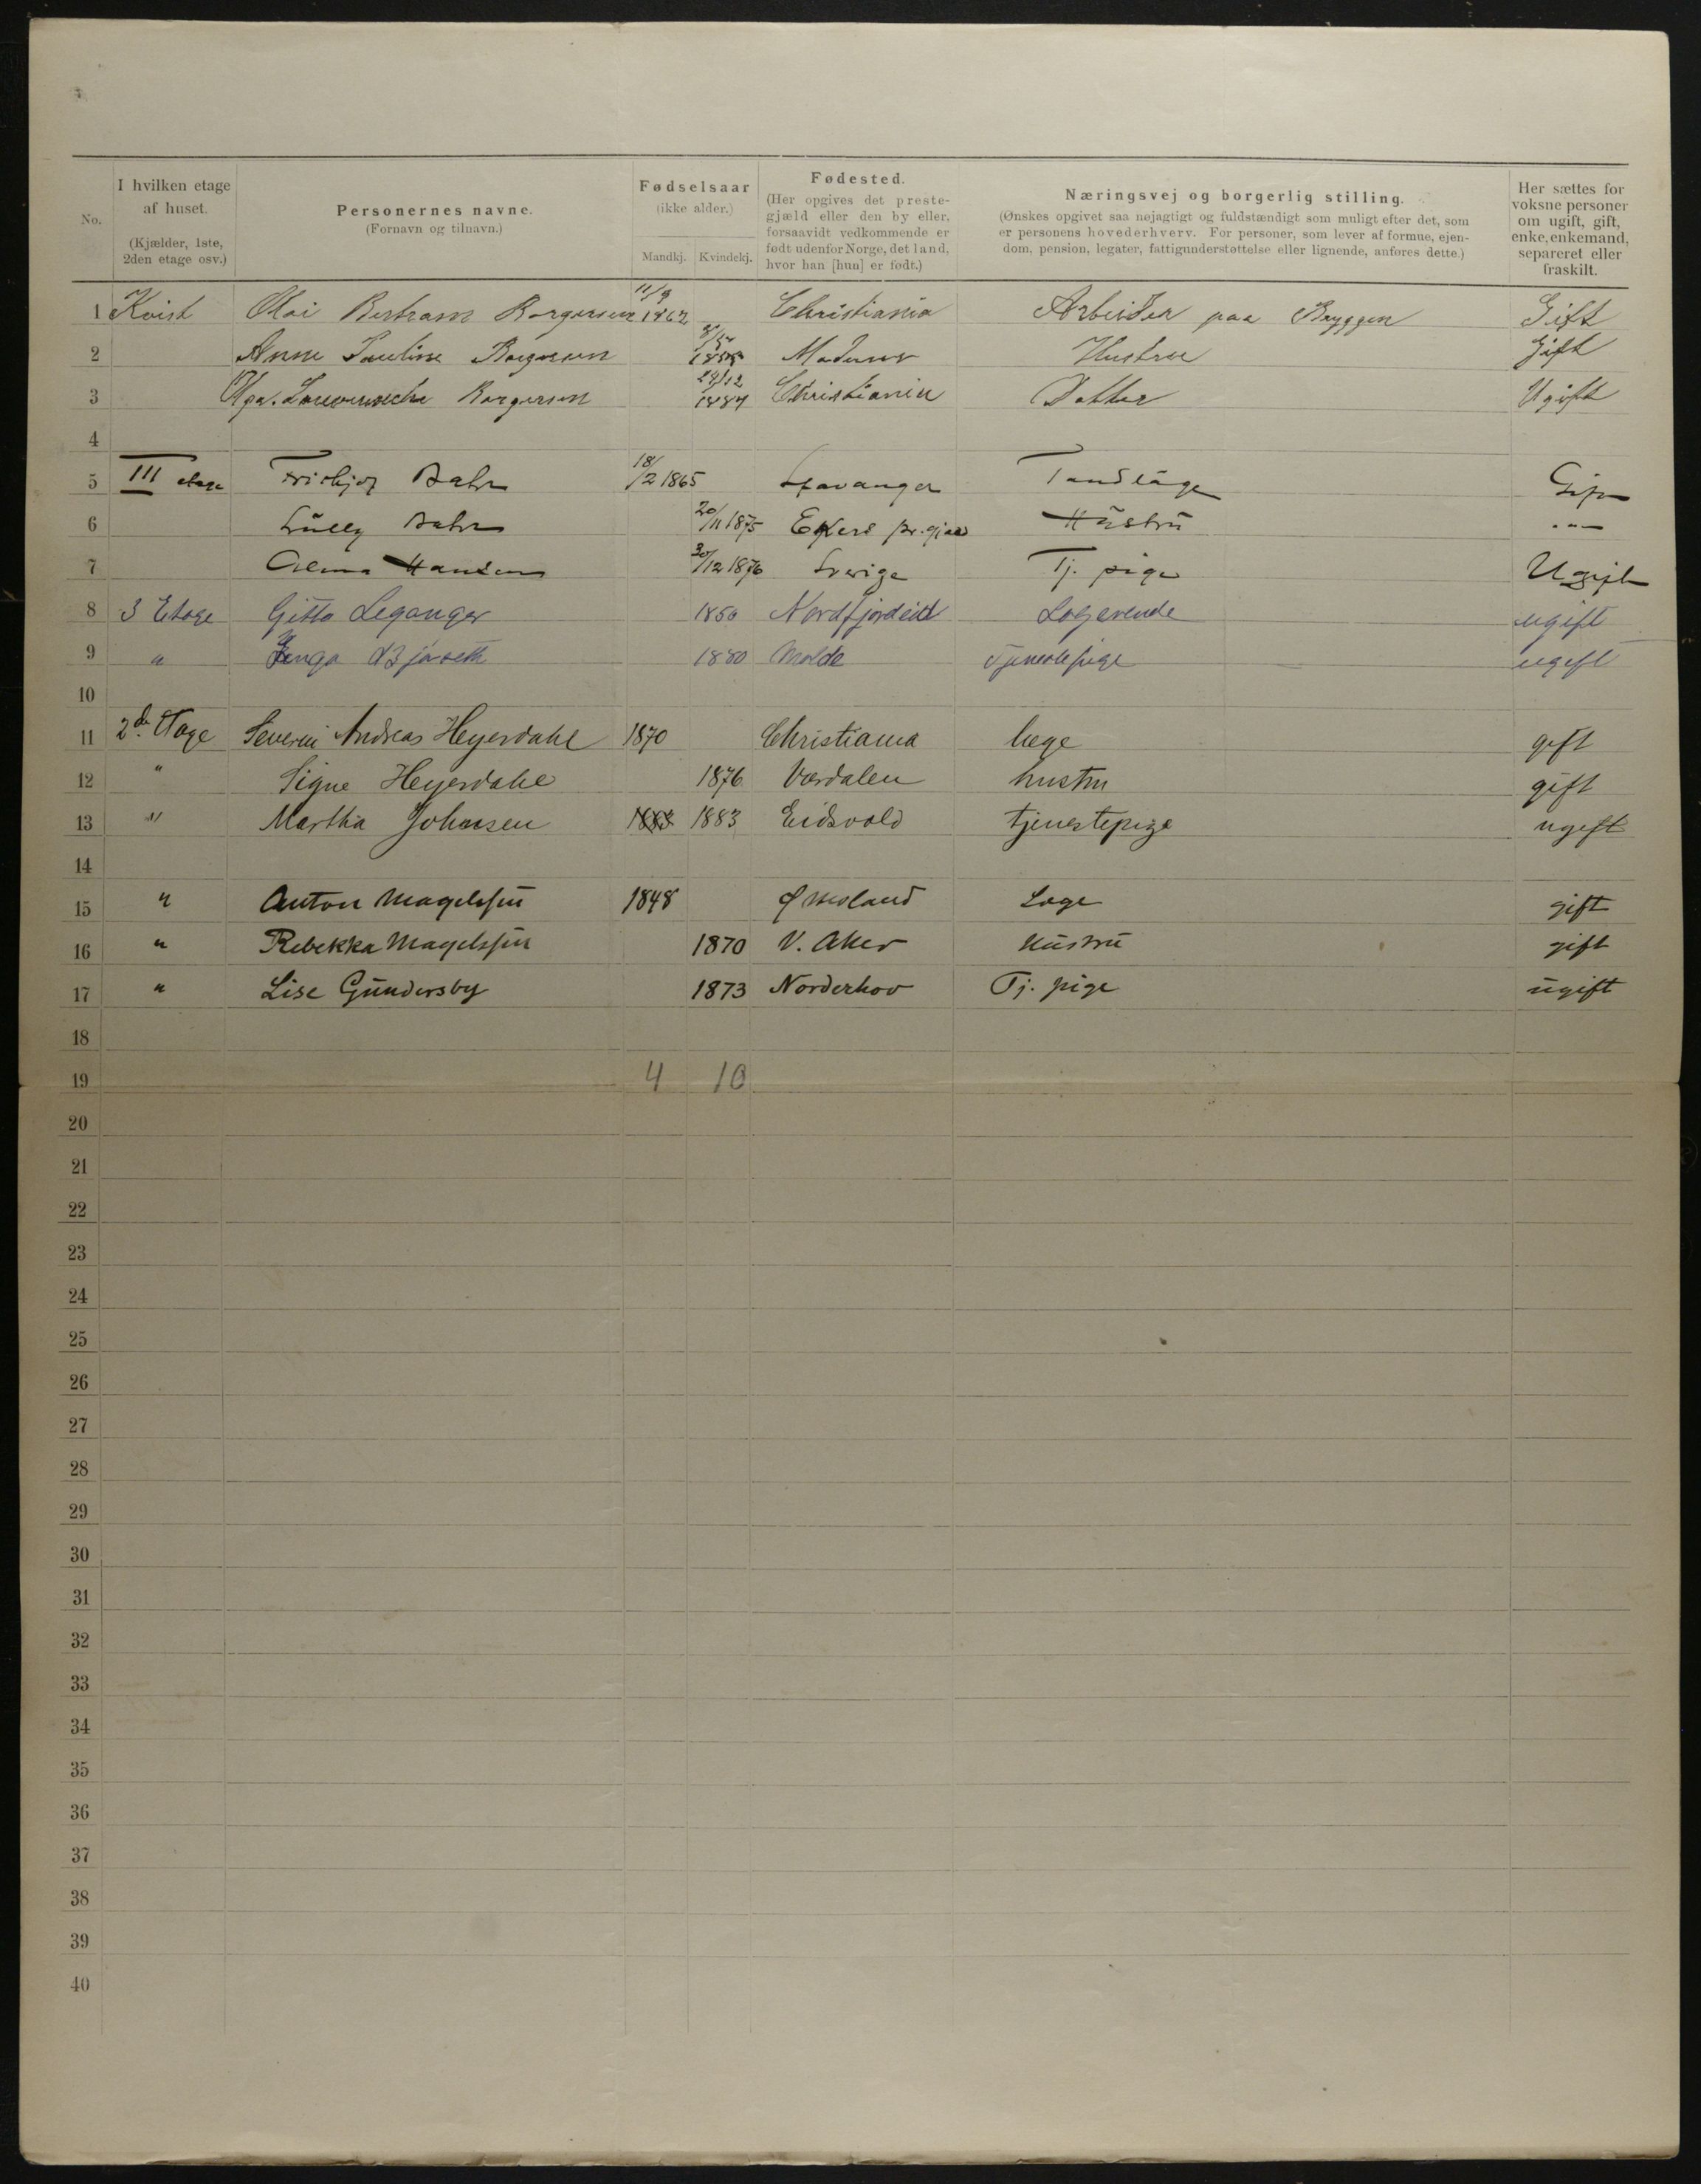 No.
I hvilken etage af huset.
(Kjælder, 1ste, 2den etage osv.)
Personernes navne.
(Fornavn og tilnavn.)
Fødselsaar
(ikke alder.)
Mandkj. Kvindekj.
Fødested.
(Her opgives det preste-
gjæld eller den by eller,
forsaavidt vedkommende er
født udenfor Norge, det land,
hvor han [hun] er født.)
Næringsvej og borgerlig stilling.
(Ønskes opgivet saa nøjagtigt og fuldstændigt som muligt efter det, som
er personens hovederhverv. For personer, som lever af formue, ejen-
dom, pension, legater, fattigunderstøttelse eller lignende, anføres dette.)
Her sættes for
voksne personer
om ugift, gift,
enke, enkemand,
separeret eller
fraskilt.
1 Kvist Olai Bertram Borgersen 11/9 1862 Christiania Arbeider paa Bryggen Gift
2 Anne Pauline Borgersen Hustrue Gift
3 Borgersen 29/12 1887 Christiania Datter Ugift
4
5 III etage Frithjof Bahr 18/2 1865 Stavanger Tandläge Gift
6 Lully Bahr 20/11 1875 Ekers pr.gjæld Hustru " -
7 Alma Hansen 30/12 1876 Sverige Tj. pige Ugift
8 3 Etage Gitta Leganger 1850 Nordfjordeid Logerende ugift
9 " 1880 Molde Tjenestepige ugift
10
11 2de Etage Severin Andreas Heyerdahl 1870 Christiania læge gift
12 " Signe Heyerdahl 1876 Værdalen hustru gift
13 " Martha Johnsen 1883 1883 Eidsvold tjenestepige ugift
14
15 " Anton Magelssen 1848 Læge gift
16 " Rebekka Magelssen 1870 V. Aker Hustru gift
17 " Lise Gundersby 1873 Norderhov Tj. pige ugift
18
19 4 10
20
21
22
23
24
25
26
27
28
29
30
31
32
33
34
35
36
37
38
39
40